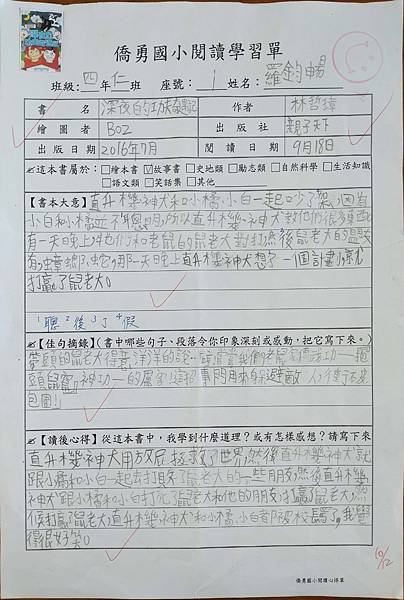 僑勇國小閱讀學習單
班級：四年仁班 座號：1 姓名：羅鈞暘
書名 深夜的功夫 作者 林哲璋
繪圖者 BO2 出版社 親子天下
出版日期 2016年7月 閱讀日期 9月18日
✍這本書屬於：□繪本書 ☑故事書 □史地類 □勵志類 □自然科學 □生活知識
□語文類 □笑話集 □其他
【書本大意】直升機神犬和小橘小白一起吵了架，因為
小白和小橘
有一天晚上，他們和老鼠的鼠老大對打，然後鼠老大的盟友
有蟑螂和蛇，那一天晚上直升機神犬想了一個計畫
打贏了鼠老大。
1聰 2後 3了 4假
✍【佳句摘錄】(書中哪些句子、段落令你印象深刻或感動，把它寫下來。)
帶頭的鼠老大得意洋洋的說：
頭鼠竄神功
包圍！
✍【讀後心得】從這本書中，我學到什麼道理？或有怎樣感想？請寫下來
直升機神犬用放屁拯救了世界，然後直升機神犬就
跟小橘和小白一起去打敗了鼠老大的一些朋友，然後直升機
神犬跟小橘和小白打死了鼠老大和他的朋友，打贏了鼠老大，
候打贏了鼠老大，直升機神犬和小橘、小白都被校長罵了，我覺
得很好笑。
10/12
僑勇國小閱讀心得單